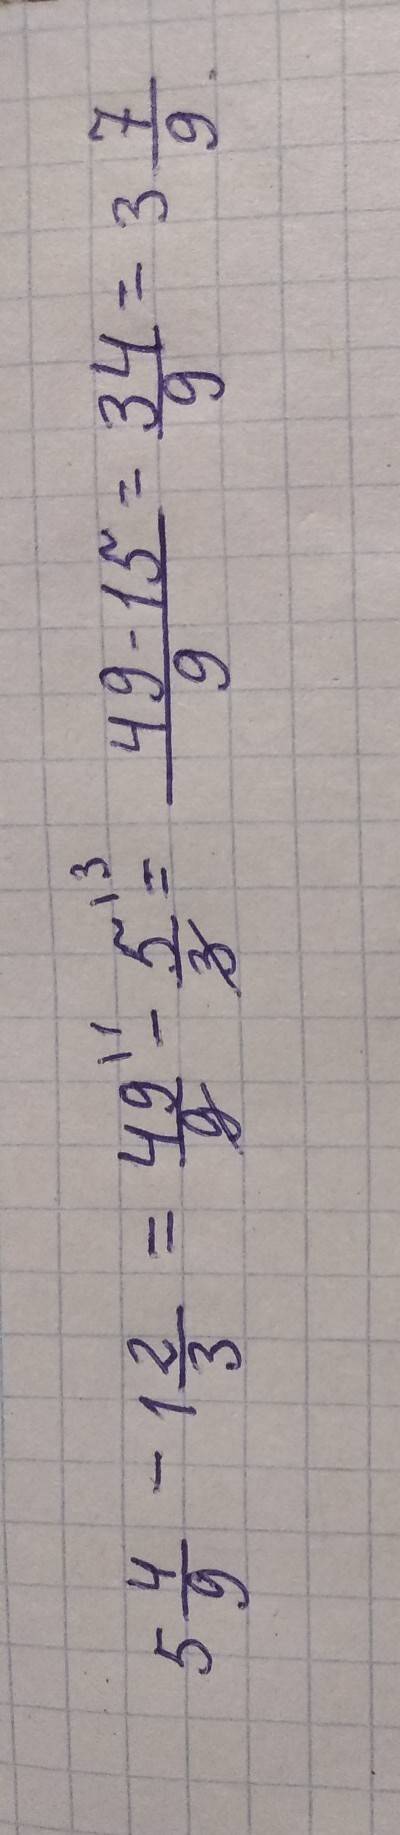 5 4/9 - 1 2/3 = 49/9 ¹¹ - 5/3 ¹³ = (49-15)/9 = 34/9 = 3 7/9